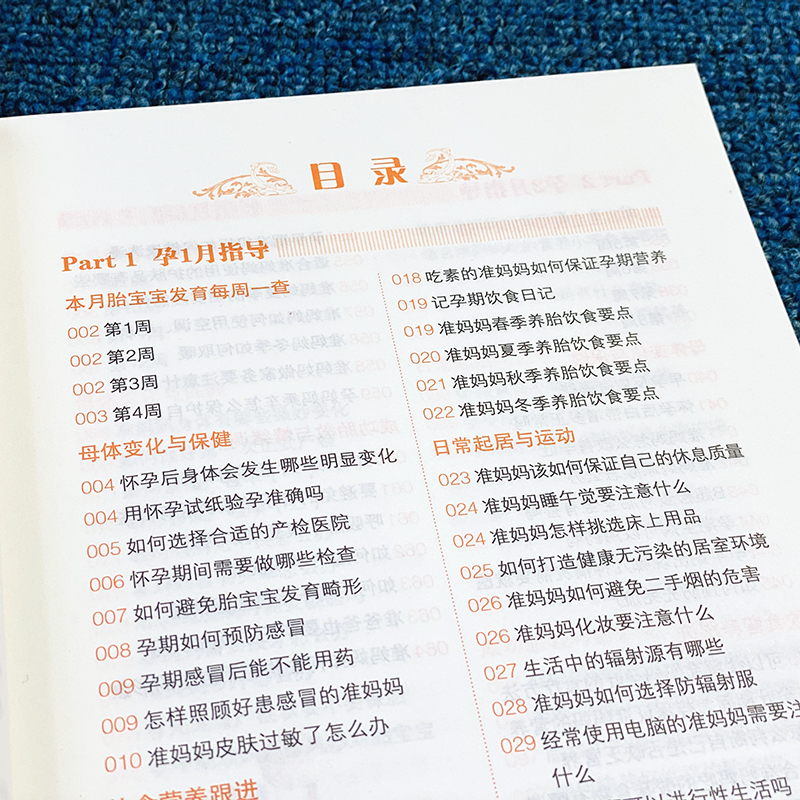 目录
Part 1 孕1月指导
本月胎宝宝发育每周一查
002 第1周
002 第2周
002 第3周
003 第4周
母体变化与保健
004 怀孕后身体会发生哪些明显变化
004 用怀孕试纸验孕准确吗
005 如何选择合适的产检医院
006 怀孕期间需要做哪些检查
007 如何避免胎宝宝发育畸形
008 孕期如何预防感冒
009 孕期感冒后能不能用药
009 怎样照顾好患感冒的准妈妈
010 准妈妈皮肤过敏了怎么办
营养跟进
018 吃素的准妈妈如何保证孕期营养
019 记孕期饮食日记
019 准妈妈春季养胎饮食要点
020 准妈妈夏季养胎饮食要点
021 准妈妈秋季养胎饮食要点
022 准妈妈冬季养胎饮食要点
日常起居与运动
023 准妈妈该如何保证自己的休息质量
024 准妈妈睡午觉要注意什么
024 准妈妈怎样挑选床上用品
025 如何打造健康无污染的居室环境
026 准妈妈如何避免二手烟的危害
026 准妈妈化妆要注意什么
027 生活中的辐射源有哪些
028 准妈妈如何选择防辐射服
029 经常使用电脑的准妈妈需要注
什么
可以进行性生活吗